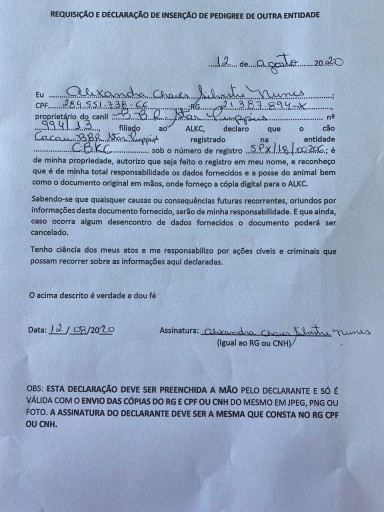 REQUISIÇÃO E DECLARAÇÃO DE INSERÇÃO DE PEDIGREE DE OUTRA ENTIDADE
12 de agosto 2020
Eu Alexandra Chaves Silvestre Nunes;
CPF 284.551.738-66 RG 21.387.894-X,
proprietário do canil B.B.R. Star Puppies nº
994/13, filiado ao ALKC, declaro que o cão
Cacau BBR Star Puppies registrado na entidade
CBKC sob o número de registro SPX/18/; é
de minha propriedade, autorizo que seja feito o registro em meu nome, e reconheço
que é de minha total responsabilidade os dados fornecidos e a posse do animal bem
como o documento original em mãos, onde forneço a cópia digital para o ALKC.
Sabendo-se que quaisquer causas ou consequências futuras recorrentes, oriundos por
informações deste documento fornecido, serão de minha responsabilidade. E que ainda,
caso ocorra algum desencontro de dados fornecidos o documento poderá ser
cancelado.
Tenho ciência dos meus atos e me responsabilizo por ações cíveis e criminais que
possam recorrer sobre as informações aqui declaradas.
O acima descrito é verdade e dou fé
Data: 12/08/2020 Assinatura: Alexandra Chaves Silvestre Nunes
(Igual ao RG ou CNH)
OBS: ESTA DECLARAÇÃO DEVE SER PREENCHIDA A MÃO PELO DECLARANTE E SÓ É
VÁLIDA COM O ENVIO DAS CÓPIAS DO RG E CPF OU CNH DO MESMO EM JPEG, PNG OU
FOTO. A ASSINATURA DO DECLARANTE DEVE SER A MESMA QUE CONSTA NO RG CPF
OU CNH.